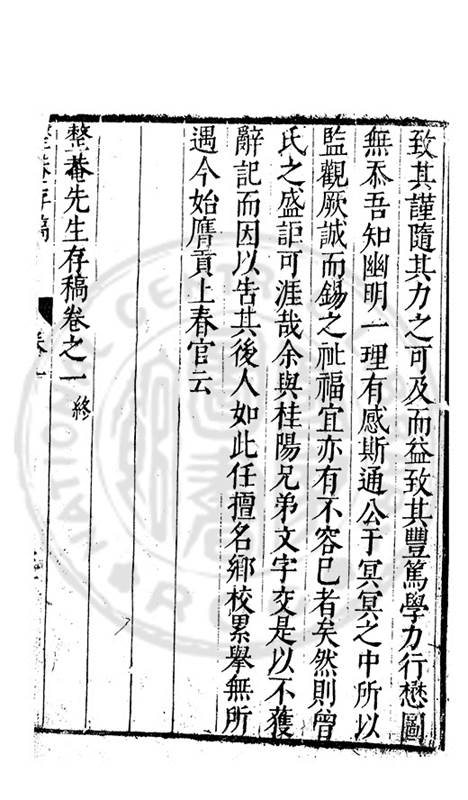 致其謹隨其力之可及而益致其豐篤學力行懋圖
無忝吾知幽明一理有感斯通公于冥冥之中所以
監觀厥誠而錫之祉福宜亦有不容已者矣然則曾
氏之盛詎可涯哉余與桂陽兄弟文字交是以不獲
辭記而因以告其後人如此任擅名鄉校累舉無所
遇今始膺貢上春官云
整菴先生存稿卷之一終
整菴存稿 卷一